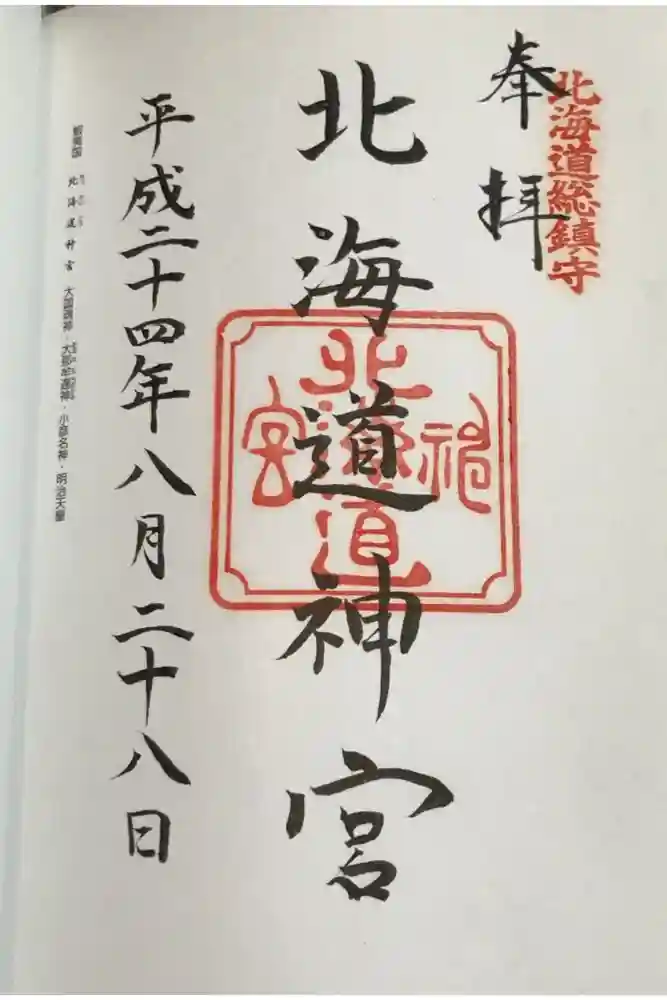 奉拝
北海道総鎮守
北海道神宮
北海道神宮
平成二十四年八月二十八日
蝦夷国 北海道神宮 大国魂神・大那牟遅神・少彦名神・明治天皇